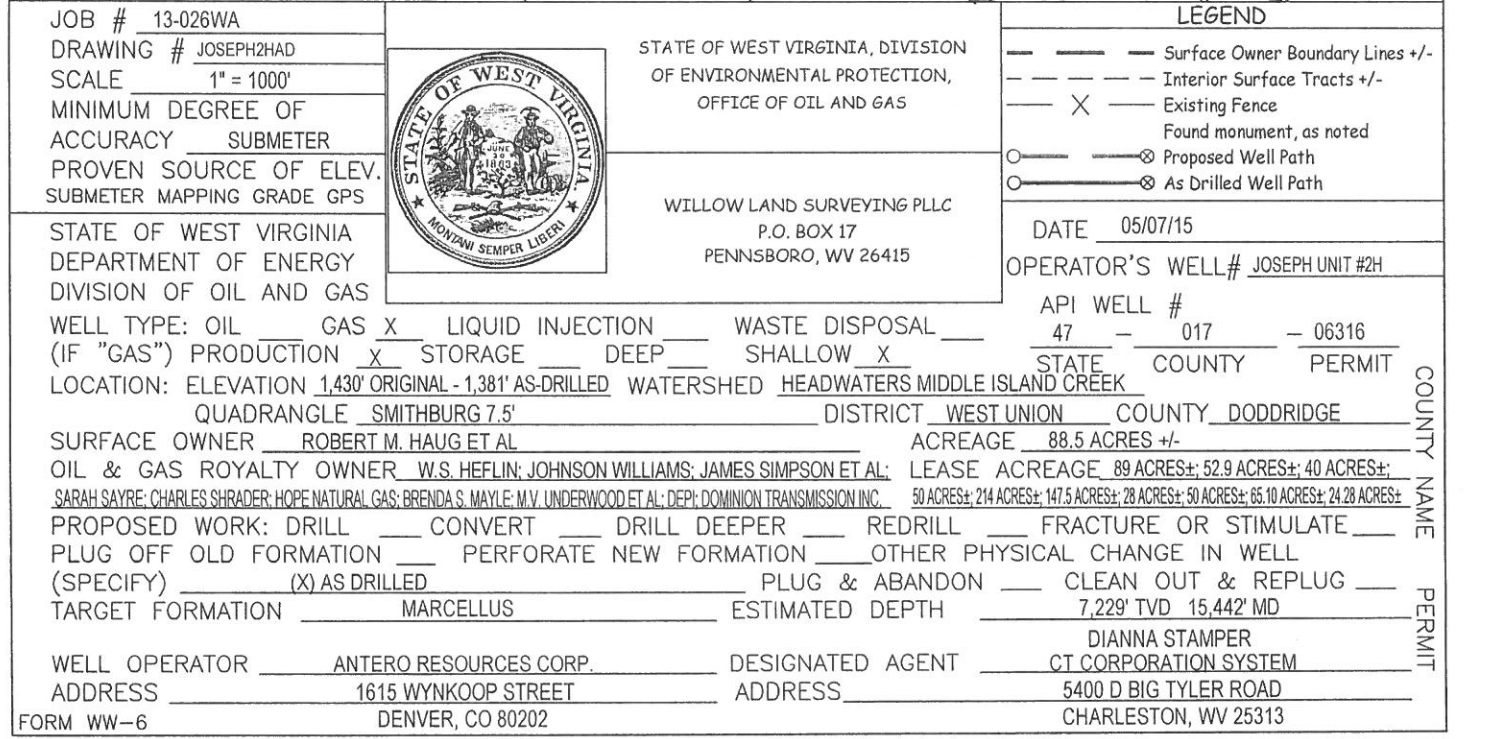 JOB # 13-026WA
DRAWING # JOSEPH2HAD
SCALE 1" = 1000'
MINIMUM DEGREE OF
ACCURACY SUBMETER
PROVEN SOURCE OF ELEV.
SUBMETER MAPPING GRADE GPS
STATE OF WEST VIRGINIA
JUNE
20
1863
MONTANI SEMPER LIBERI
STATE OF WEST VIRGINIA, DIVISION
OF ENVIRONMENTAL PROTECTION,
OFFICE OF OIL AND GAS
WILLOW LAND SURVEYING PLLC
P.O. BOX 17
PENNSBORO, WV 26415
LEGEND
Surface Owner Boundary Lines +/-
Interior Surface Tracts +/-
X Existing Fence
Found monument, as noted
Proposed Well Path
As Drilled Well Path
STATE OF WEST VIRGINIA
DEPARTMENT OF ENERGY
DIVISION OF OIL AND GAS
DATE 05/07/15
OPERATOR'S WELL# JOSEPH UNIT #2H
API WELL #
47 – 017 – 06316
STATE COUNTY PERMIT
WELL TYPE: OIL ___ GAS X LIQUID INJECTION ___ WASTE DISPOSAL ___
(IF "GAS") PRODUCTION X STORAGE ___ DEEP ___ SHALLOW X
LOCATION: ELEVATION 1,430' ORIGINAL - 1,381' AS-DRILLED WATERSHED HEADWATERS MIDDLE ISLAND CREEK
QUADRANGLE SMITHBURG 7.5' DISTRICT WEST UNION COUNTY DODDRIDGE
SURFACE OWNER ROBERT M. HAUG ET AL ACREAGE 88.5 ACRES +/-
OIL & GAS ROYALTY OWNER W.S. HEFLIN; JOHNSON WILLIAMS; JAMES SIMPSON ET AL; LEASE ACREAGE 89 ACRES±; 52.9 ACRES±; 40 ACRES±;
SARAH SAYRE; CHARLES SHRADER; HOPE NATURAL GAS; BRENDA S. MAYLE; M.V. UNDERWOOD ET AL; DEPI; DOMINION TRANSMISSION INC. 50 ACRES±; 214 ACRES±; 147.5 ACRES±; 28 ACRES±; 50 ACRES±; 65.10 ACRES±; 24.28 ACRES±
PROPOSED WORK: DRILL ___ CONVERT ___ DRILL DEEPER ___ REDRILL ___ FRACTURE OR STIMULATE ___
PLUG OFF OLD FORMATION ___ PERFORATE NEW FORMATION ___ OTHER PHYSICAL CHANGE IN WELL
(SPECIFY) (X) AS DRILLED PLUG & ABANDON ___ CLEAN OUT & REPLUG ___
TARGET FORMATION MARCELLUS ESTIMATED DEPTH 7,229' TVD 15,442' MD
DIANNA STAMPER
WELL OPERATOR ANTERO RESOURCES CORP. DESIGNATED AGENT CT CORPORATION SYSTEM
ADDRESS 1615 WYNKOOP STREET ADDRESS 5400 D BIG TYLER ROAD
FORM WW-6 DENVER, CO 80202 CHARLESTON, WV 25313
COUNTY NAME PERMIT